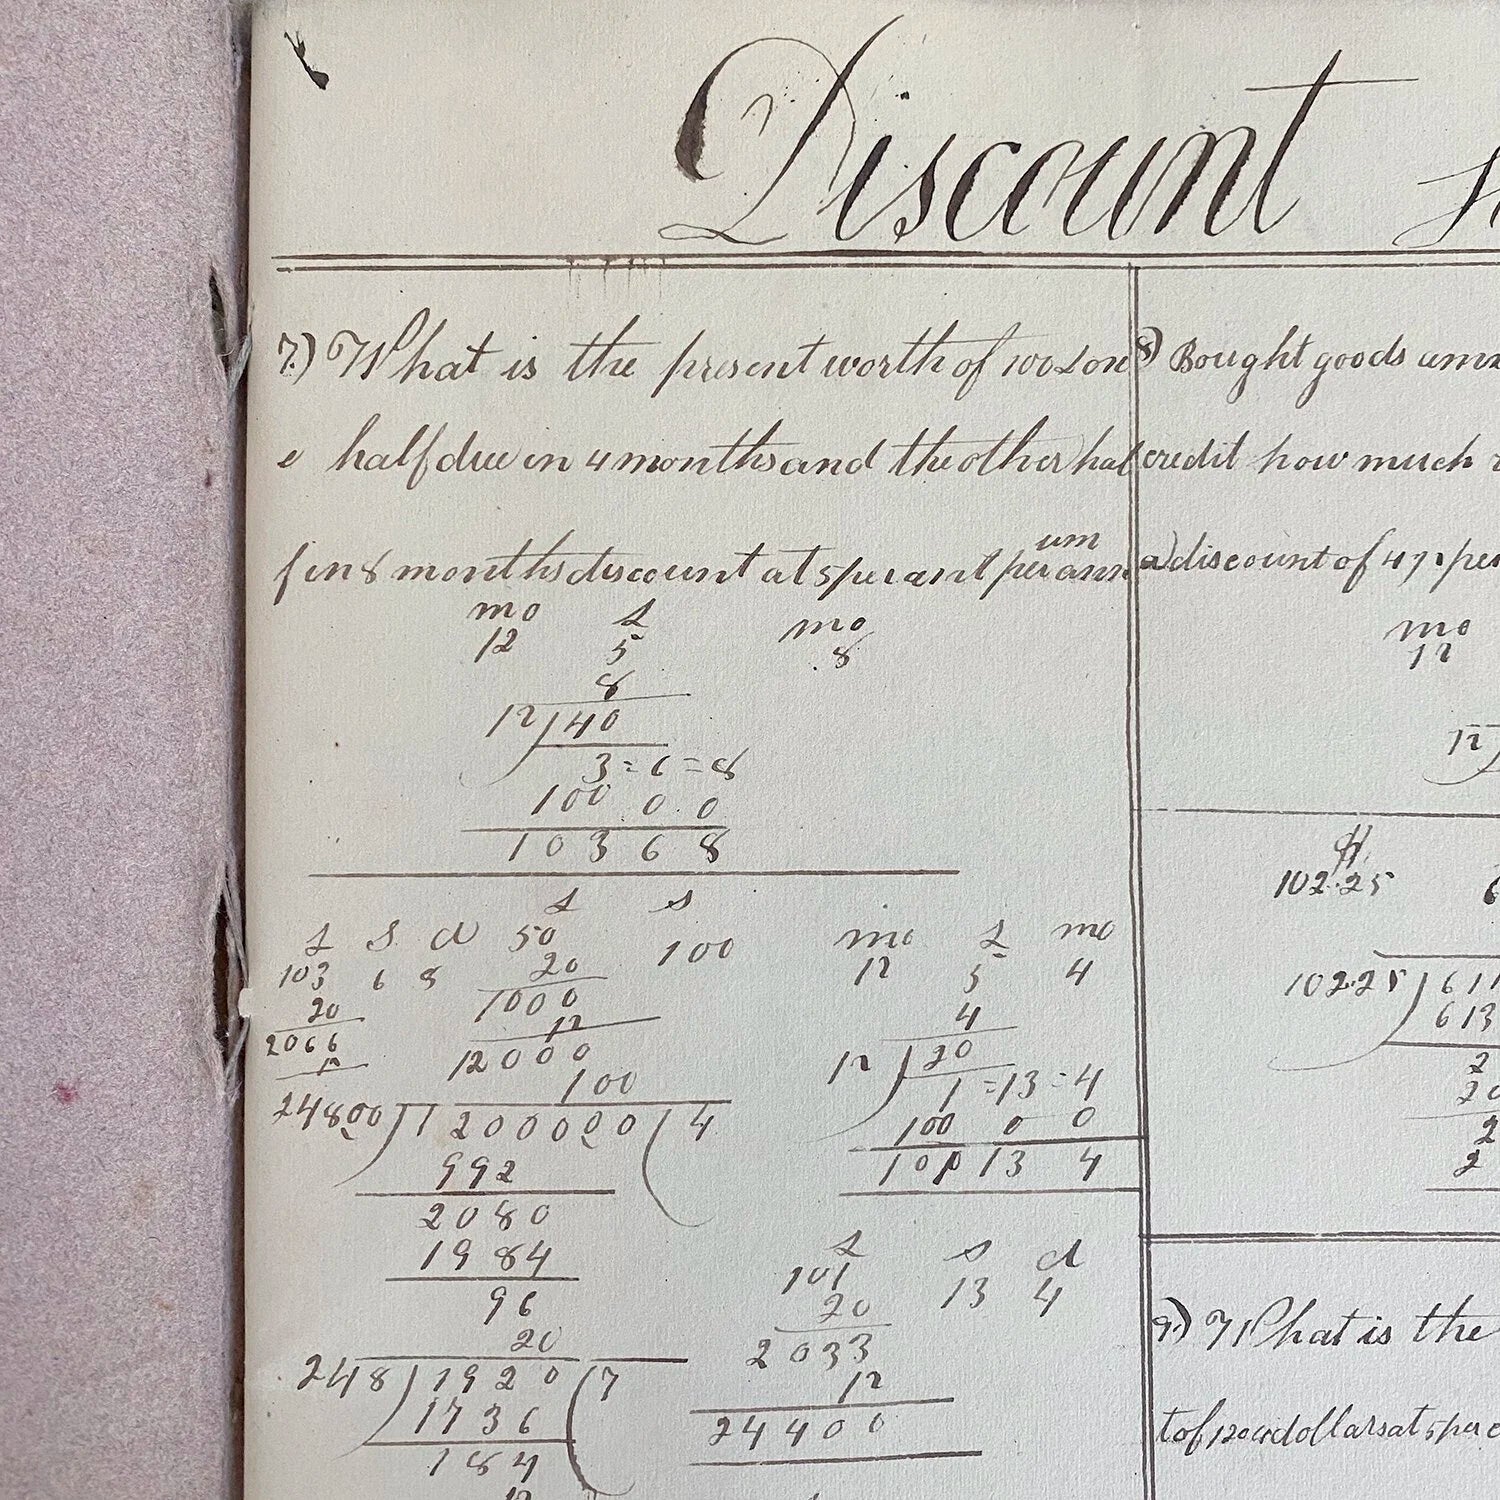 Discount
7.) What is the present worth of 100 £ on
e half due in 4 months and the other hal
f in 8 months discount at 5 per cent per ann
um
mo £ mo
12 5 8
8
12)40
3=6=8
100 0 0
103 6 8
£ s
£ s d 50
103 6 8 20 100
20 1000
2066 12
12 12000
100
24800)12000000(4
992
2080
1984
96
20
248)1920(7
1736
184
12
mo £ mo
12 5 4
4
12)20
1=13=4
100 0 0
101 13 4
£ s d
101 13 4
20
2033
12
24400
8) Bought goods
credit how much
a discount of 4 1/2 per
mo
12
12)
$
102.25 6
102.25)611
613
2
20
2
2
9.) What is the
t of 120 dollars at 5 per c